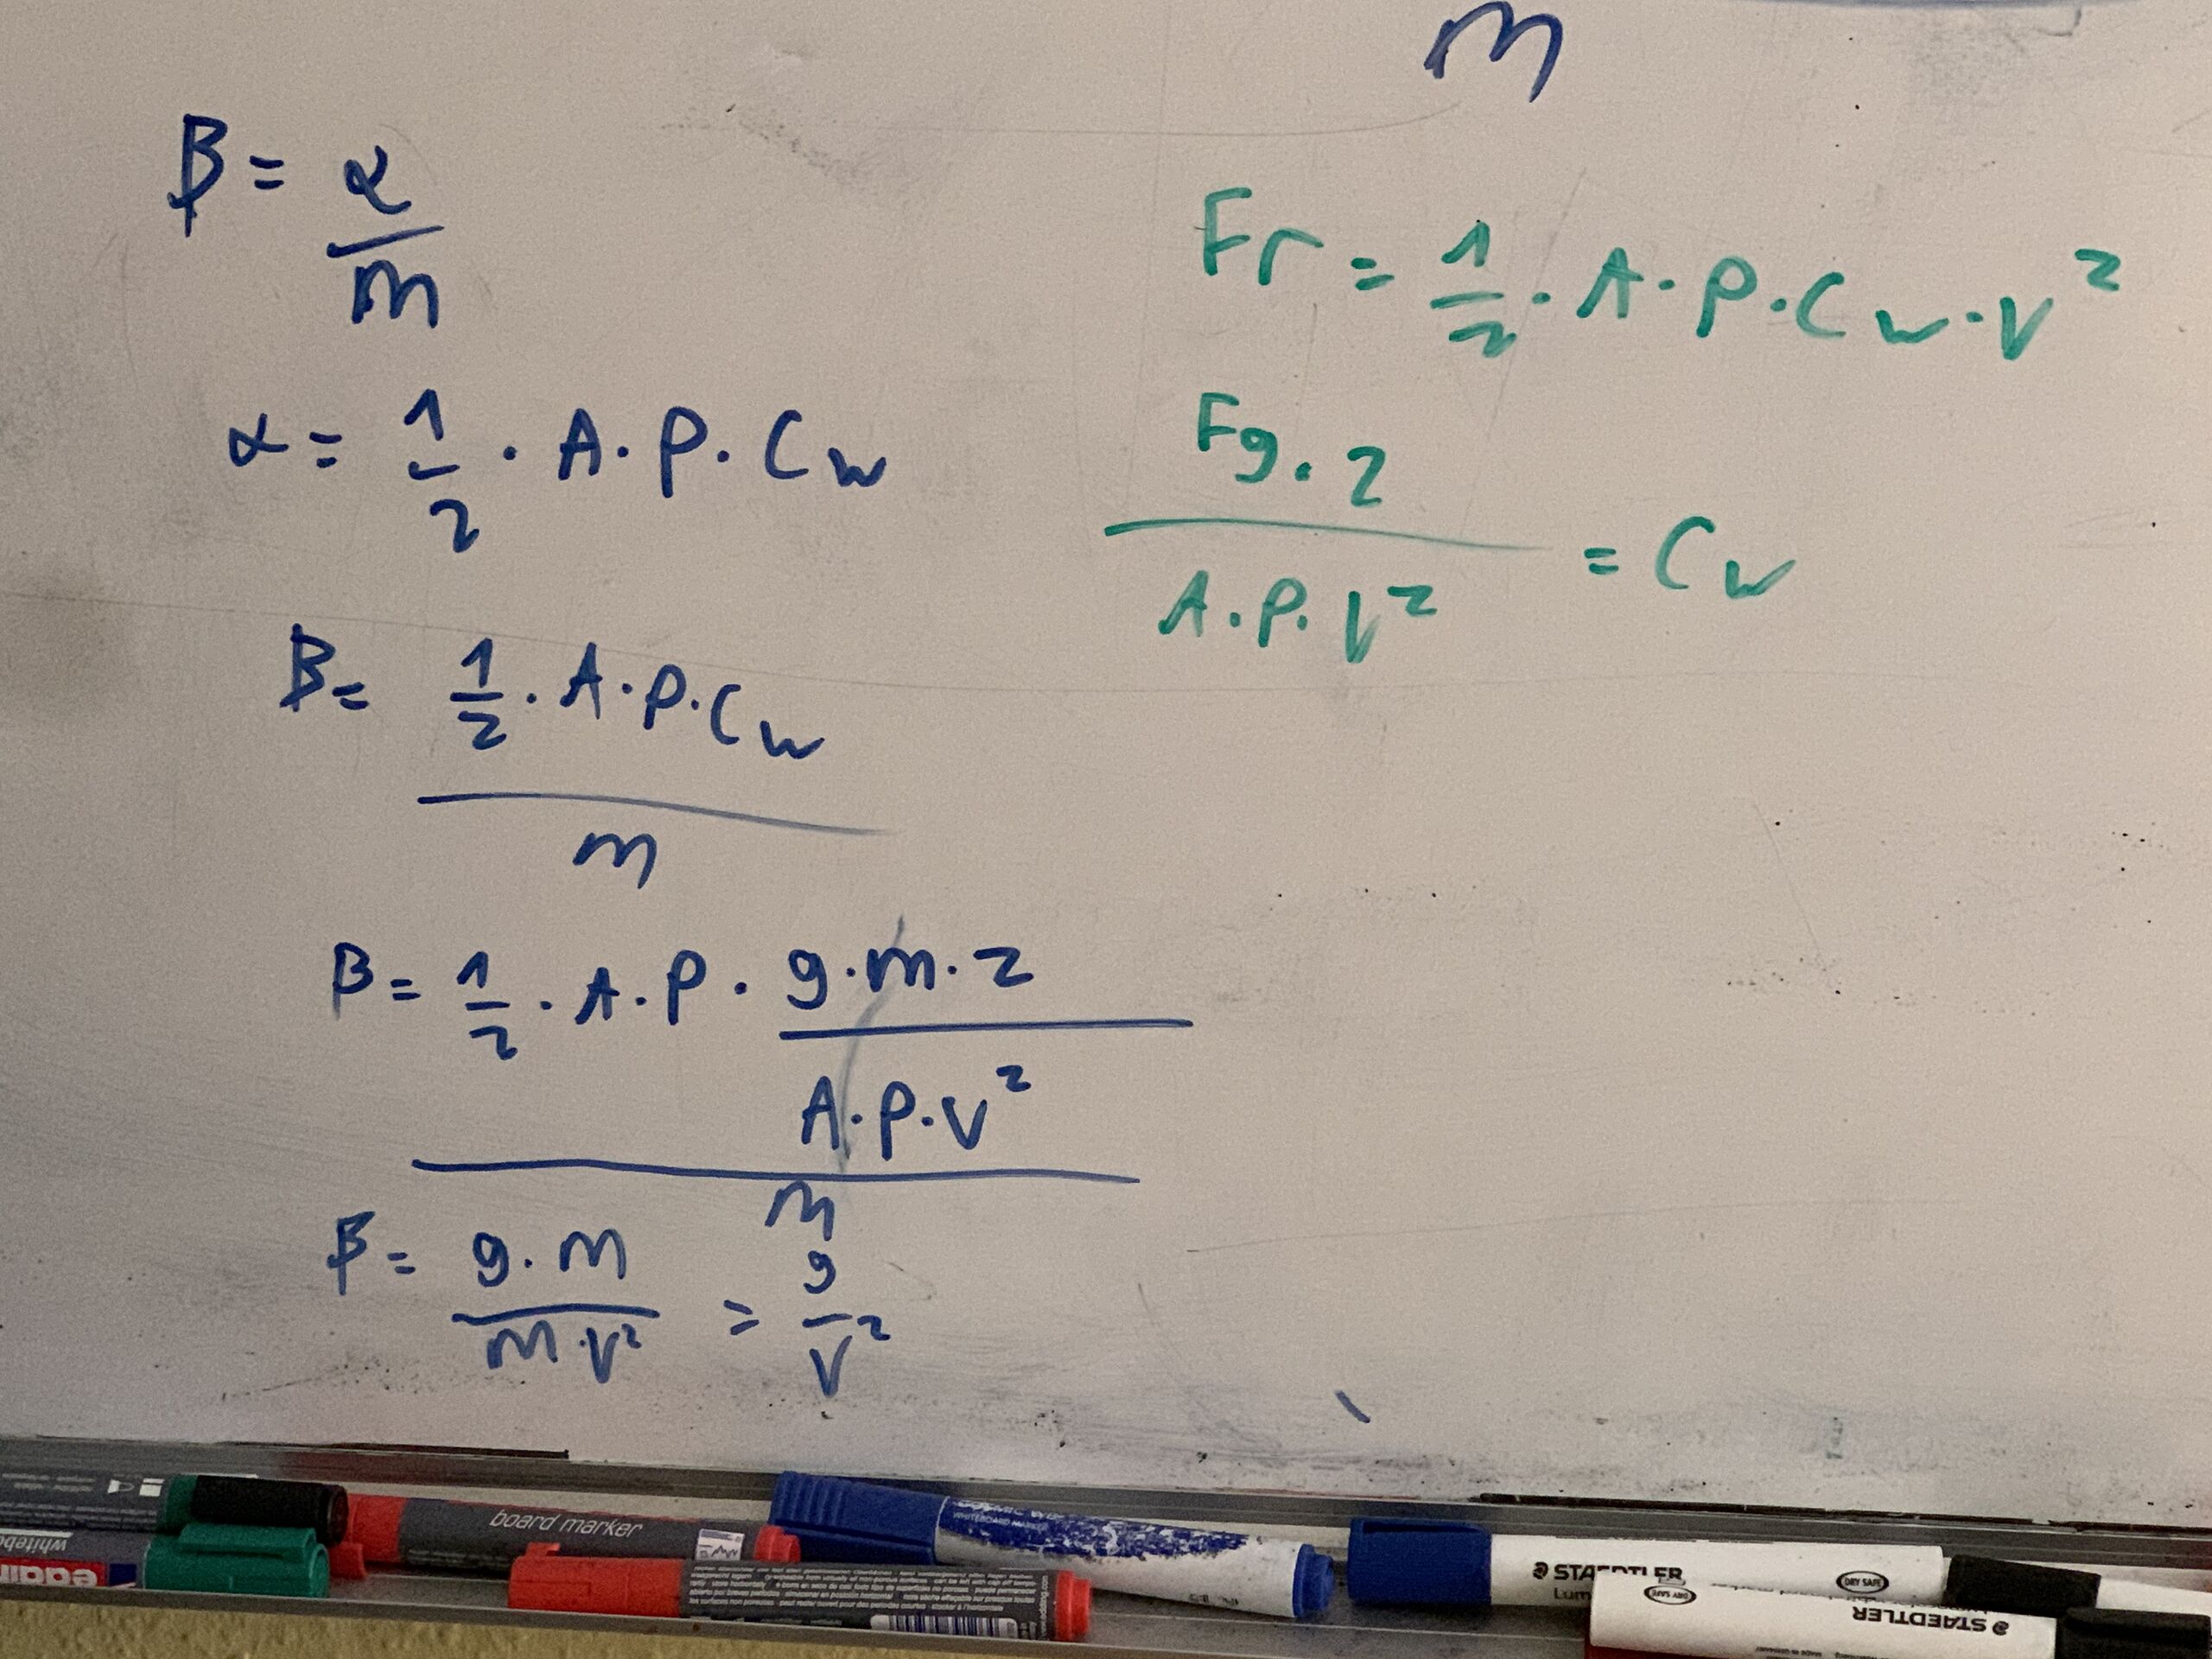 m
β = α/m
Fr = 1/2 · A · ρ · Cw · v²
α = 1/2 · A · ρ · Cw
Fg · 2 / A · ρ · v² = Cw
β = 1/2 · A · ρ · Cw / m
β = 1/2 · A · ρ · g · m · 2 / A · ρ · v² / m
β = g · m / m · v² = g / v²
board marker
WHITEBOARD MARKER
STAEDTLER
Lum
DRY SAFE
DRY SAFE
STAEDTLER
whitebo
eddi